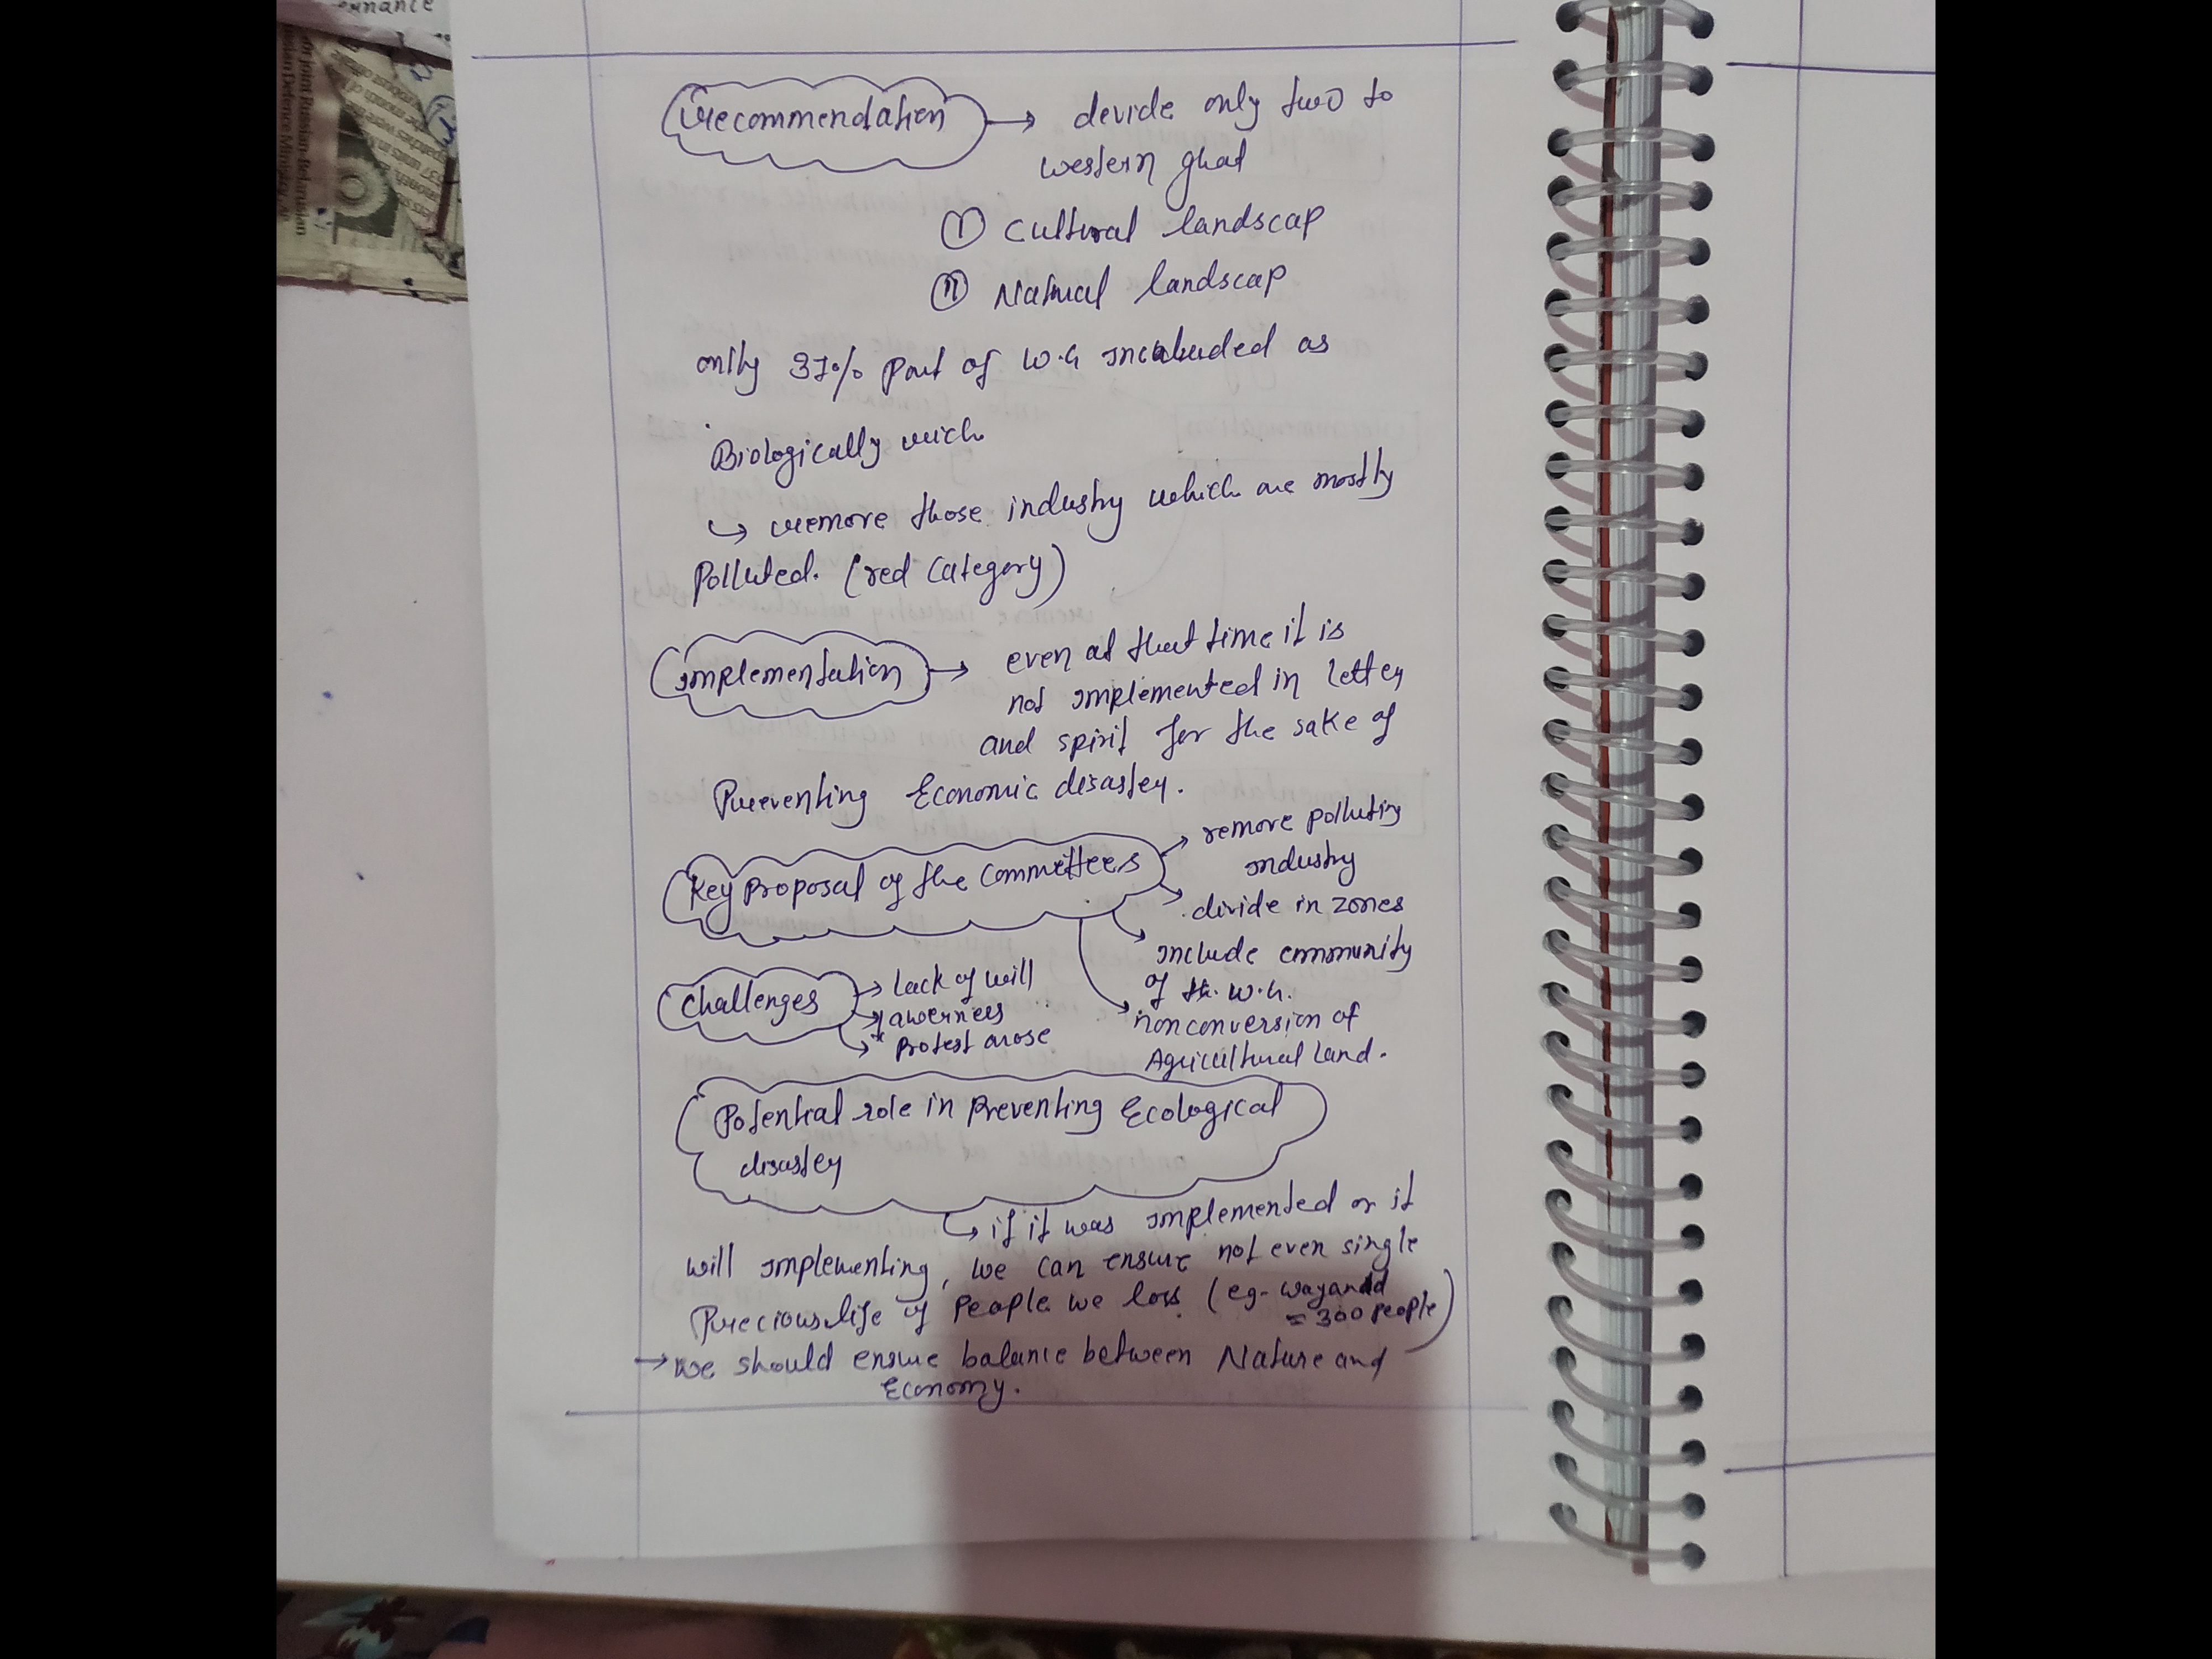 ernance
recommendation → devide only two to
western ghat
① Cultural landscap
② Natural landscap
only 37% part of W.G included as
Biologically rich
↳ remove those industry which are mostly
Polluted. (red category)
implementation → even at that time it is
not implemented in letter
and spirit for the sake of
Preventing Economic disaster.
Key proposal of the committees → remove polluting
industry
→ divide in zones
→ include community
of the W.G.
→ nonconversion of
Agricultural land.
Challenges → lack of will
→ awernees
→ * Protest arose
Potential role in preventing Ecological
disaster
↳ if it was implemented or it
will implementing, we can ensure not even single
Precious life of people we loss (eg- wayanad
= 300 people)
→ we should ensure balance between Nature and
Economy.
joint Russian-Belarusian
Defence Ministry